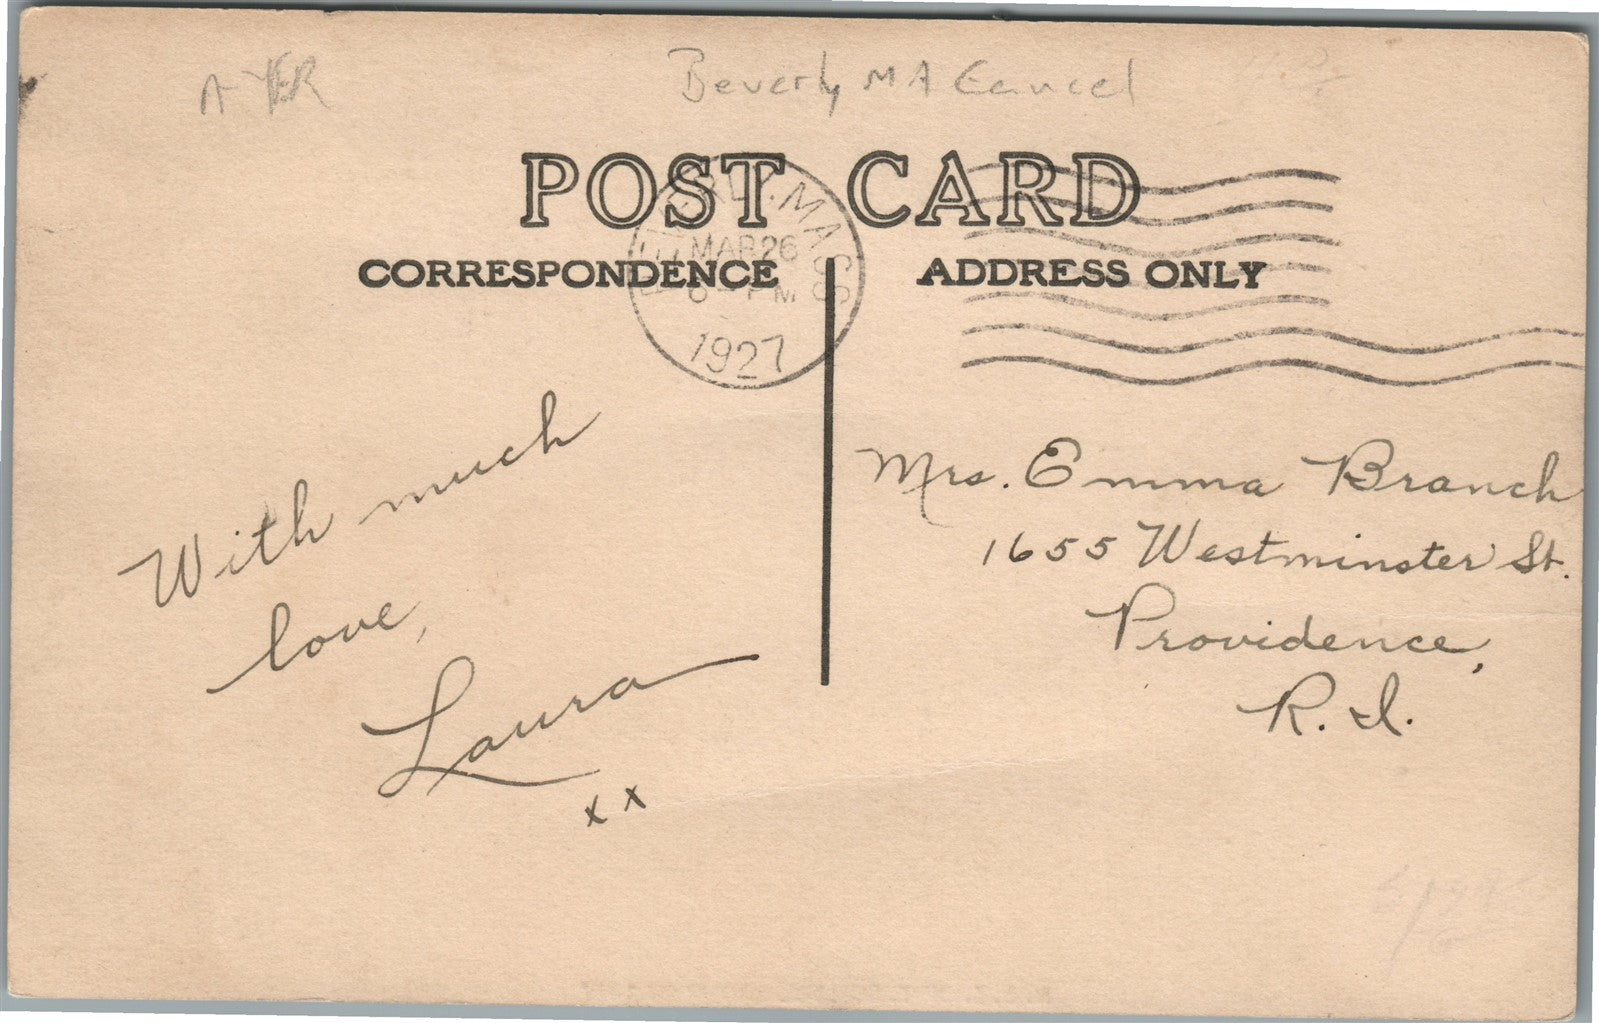 Beverly MA Cancel
POST CARD
CORRESPONDENCE
ADDRESS ONLY
BEVERLY. MASS
MAR 26
PM
1927
With much
love,
Laura
x x
Mrs. Emma Branch
1655 Westminster St.
Providence,
R. I.